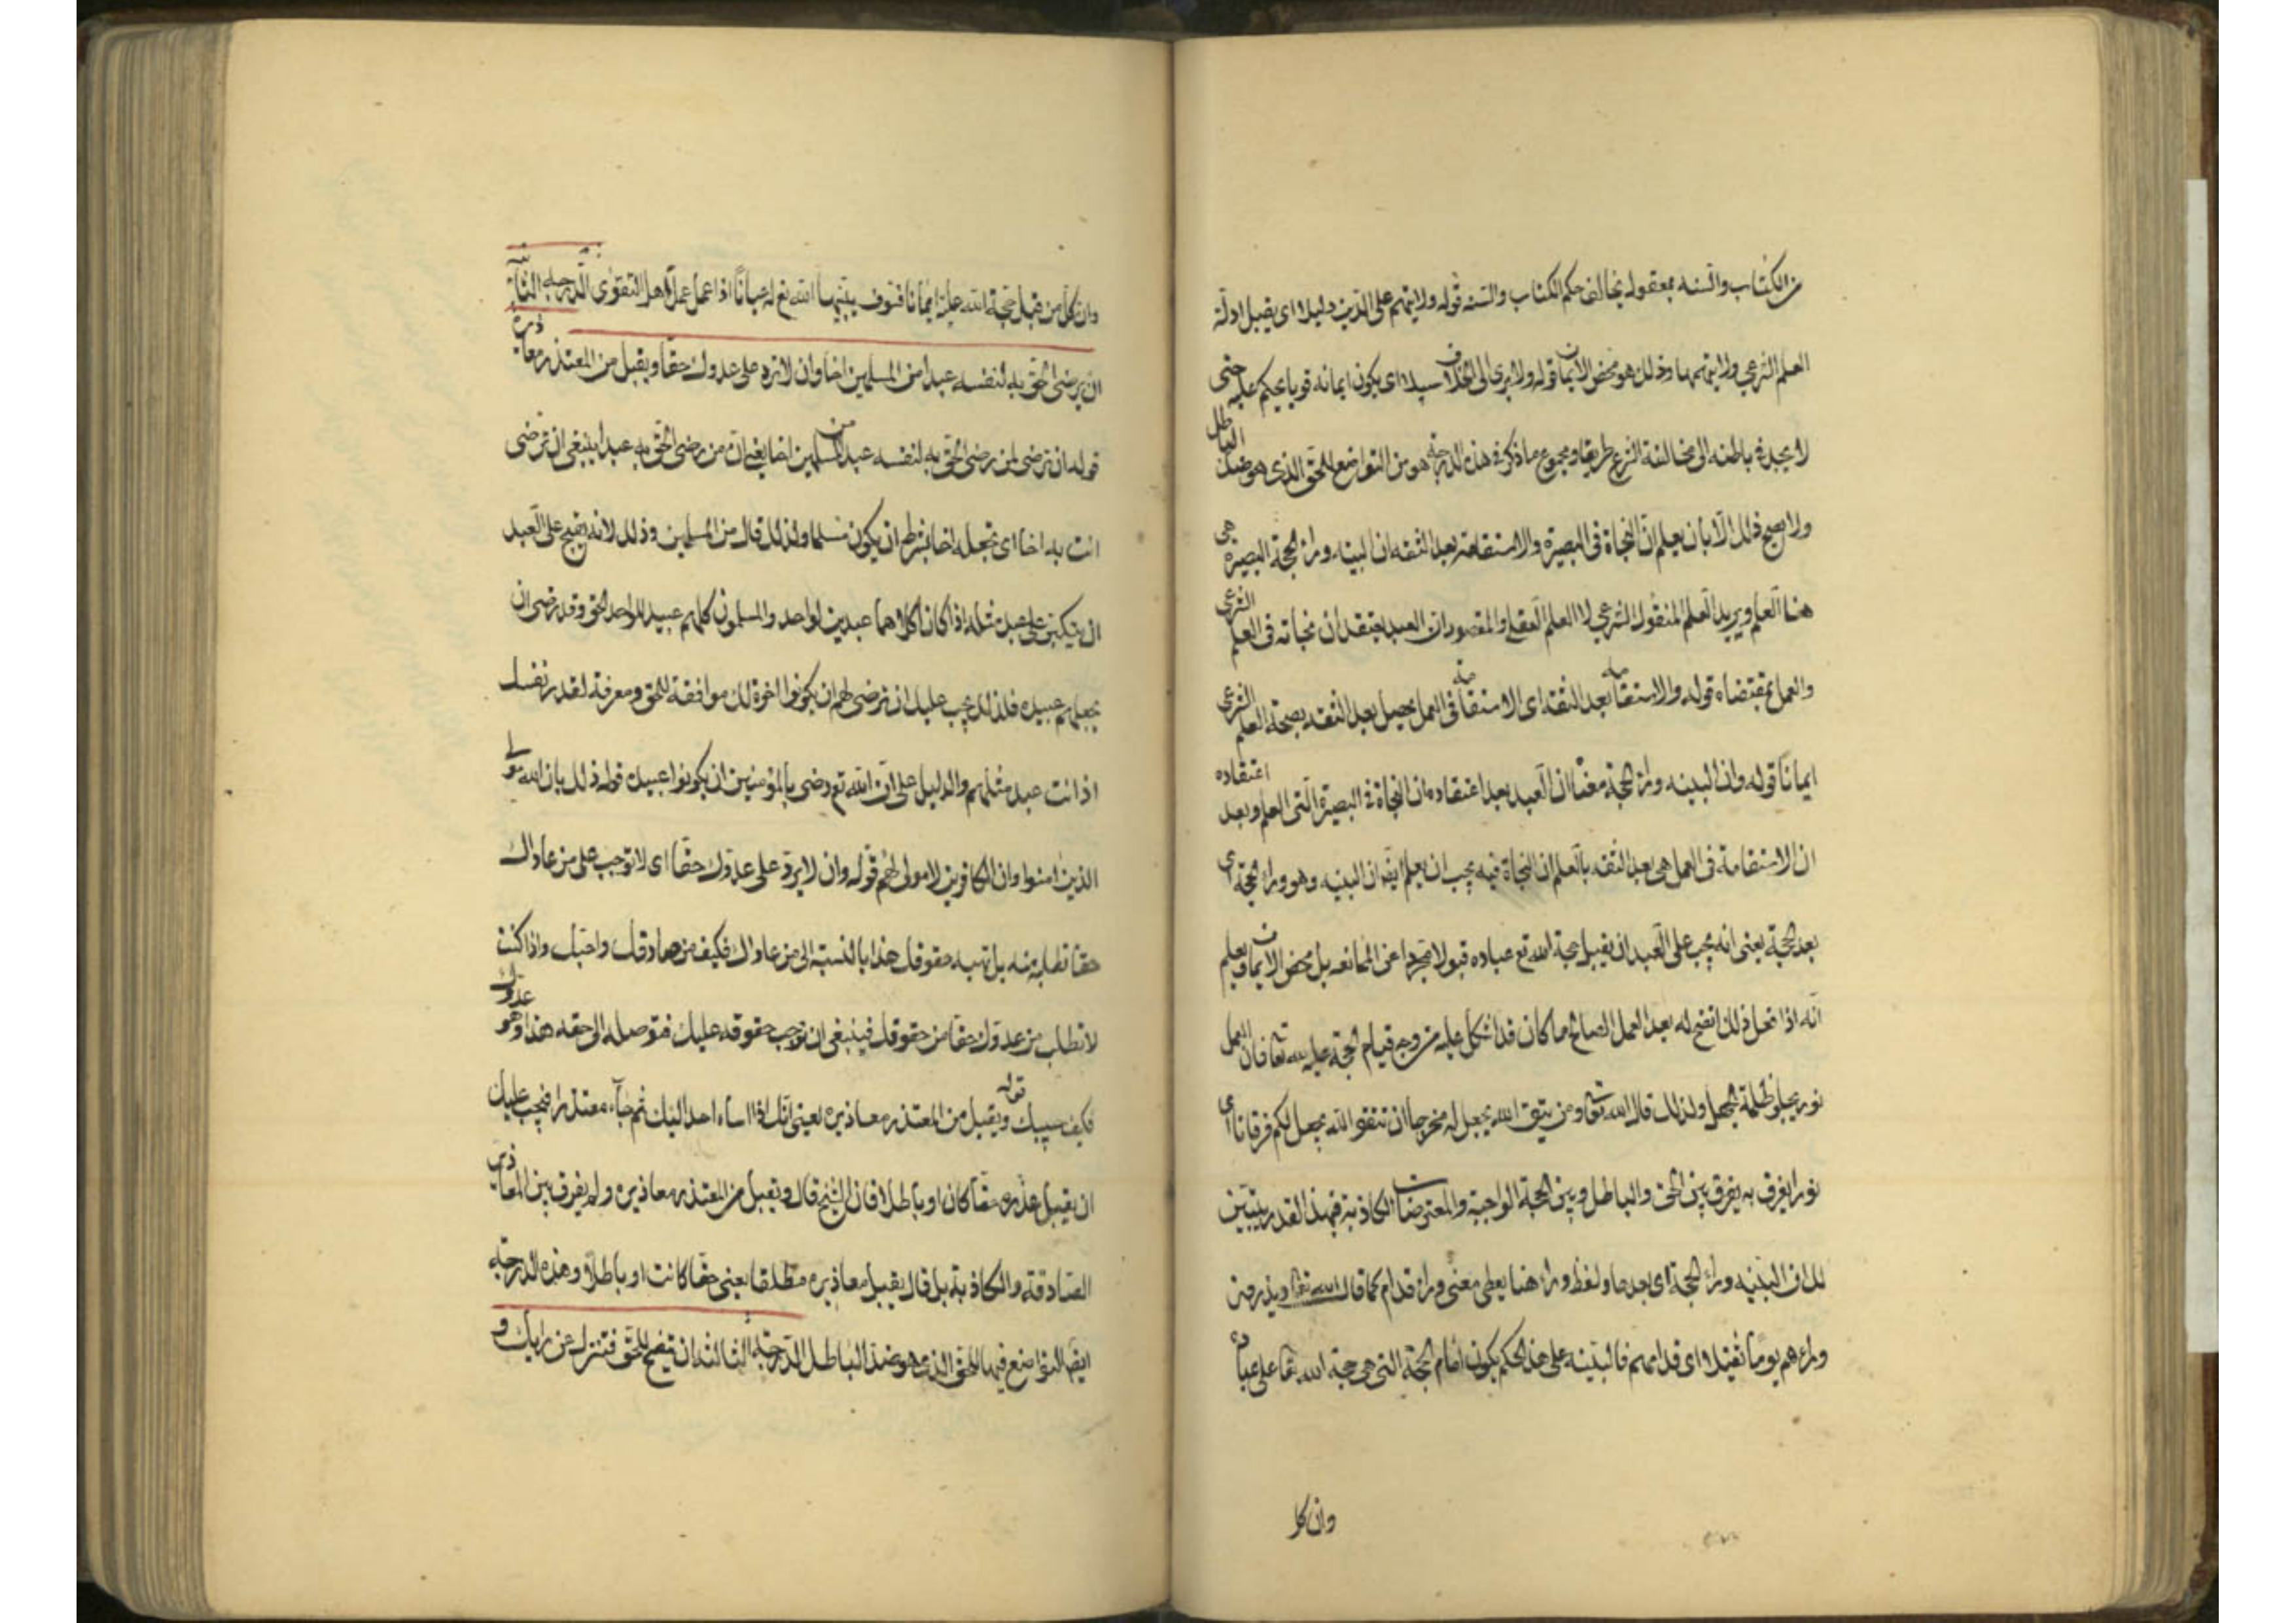 من الكتاب والسنه بمعقوله يخالف حكم الكتاب والسنه قوله ولا يتهم على الدين دليلا اى يقبل ادلة
العلم الشرعي ولا يتهمها وذلك هو محض الايمان قوله ولا يرى الى الخلاف سبيلا اى يكون ايمانه قويا يحكم عليه حتى
لا يجد في باطنه الى مخالفة الشرع طريقا ومجموع ما ذكر في هذه الدرجة هو من التواضع للحق الذى هو ضد الباطل
ولا يصح ذلك الا بان يعلم ان النجاة فى البصيرة والاستقامة بعد الثقه ان البينه وراء الحجة البصيرة هى
هنا العلم ويريد العلم المنقول الشرعي لا العلم العقلي والمقصود ان العبد يعتقد ان نجاته فى العلم الشرعي
والعمل بمقتضاه قوله والاستقامة بعد الثقه اى الاستقامة فى العمل يحصل بعد الثقه بصحة العلم الشرعي
ايمانا قوله وان البينه وراء الحجة معناه ان العبد بعد اعتقاده ان النجاة في البصيرة التى العلم وبعد اعتقاده
ان الاستقامة فى العمل هى بعد الثقه بالعلم ان النجاة فيه يجب ان يعلم ايضا ان البينه وهو وراء الحجة اى
بعد الحجة يعنى انه يجب على العبد ان يقبل حجة الله تع عباده قبولا مجردا عن الممانعه بل محض الايمان ويعلم
انه اذا فعل ذلك انفتح له بعد العمل الصالح ما كان قد اشكل عليه من وجه قيام الحجة عليه لله تعا فان العمل
نور يجلو ظلمة الجهل ولذلك قال الله تعا ومن يتق الله يجعل له مخرجا ان تتقوا الله يجعل لكم فرقانا اى
نورا يفرق به يفرق بين الحق والباطل وبين الحجة الواجبة والمعترضات الكاذبة فبهذا القدر يتبين
لك ان البينه وراء الحجة اى بعدها ولفظ وراء هنا يعطى معنى وراء قدام كما قال الله تعا ويذرون
وراءهم يوما ثقيلا اى قدامهم فالبينه على هذا الحكم يكون امام الحجة التى هى حجة الله تعا على عباده
وان كل
وان كل من قبل حجة الله عليه ايمانا فسوف يبينها الله تع له عيانا اذا عمل عمل اهل التقوى الدرجة الثانية
ان يرضى الحق به لنفسه عبدا من المسلمين اخا وان لا ترد على عدوك حقا ويقبل من المعتذر معاذيره
قوله ان ترضى لمن رضى الحق به لنفسه عبدا من المسلمين اخا يعنى ان من رضى الحق به عبدا ينبغى ان ترضى
انت به اخا اى تجعله اخا بشرط ان يكون مسلما ولذلك قال من المسلمين وذلك لانه يقبح على العبد
ان يتكبر على عبد مثله اذا كانا كلاهما عبدين لواحد والمسلمون كلهم عبيد للواحد الحق وقد رضى ان
يجعلهم عبيده فلذلك يجب عليك ان ترضى لهم ان يكونوا اخوة لك موافقة للحق ومعرفة لقدر نفسك
اذ انت عبد مثلهم والدليل على ان الله تع رضى بالمؤمنين ان يكونوا عبيده قوله ذلك بان الله مولى
الذين امنوا وان الكافرين لا مولى لهم قوله وان لا يرد على عدوك حقا اى لا توجب على من عاداك
حقا تطلبه منه بل تهبه حقوقك هذا بالنسبة الى من عاداك فكيف من صادقك واحبك واذا كنت
لا تطلب من عدوك حقا من حقوقك فينبغى ان توجب حقوقه عليك فتوصله الى حقه هذا وهو عدوك
فكيف قوله ويقبل من المعتذر معاذيره يعنى انك اذا اساء احد اليك ثم جاء معتذرا فيجب عليك
ان يقبل عذره حقا كان او باطلا فان الشيخ قال ويقبل من المعتذر معاذيره ولم يفرق بين المعاذير
الصادقة والكاذبة بل قال يقبل معاذيره مطلقا يعنى حقا كانت او باطلا وهذه الدرجة
ايضا التواضع فيها للحق الذى هو ضد الباطل الدرجة الثالثة ان يتضع للحق فتنزل عن رايك و